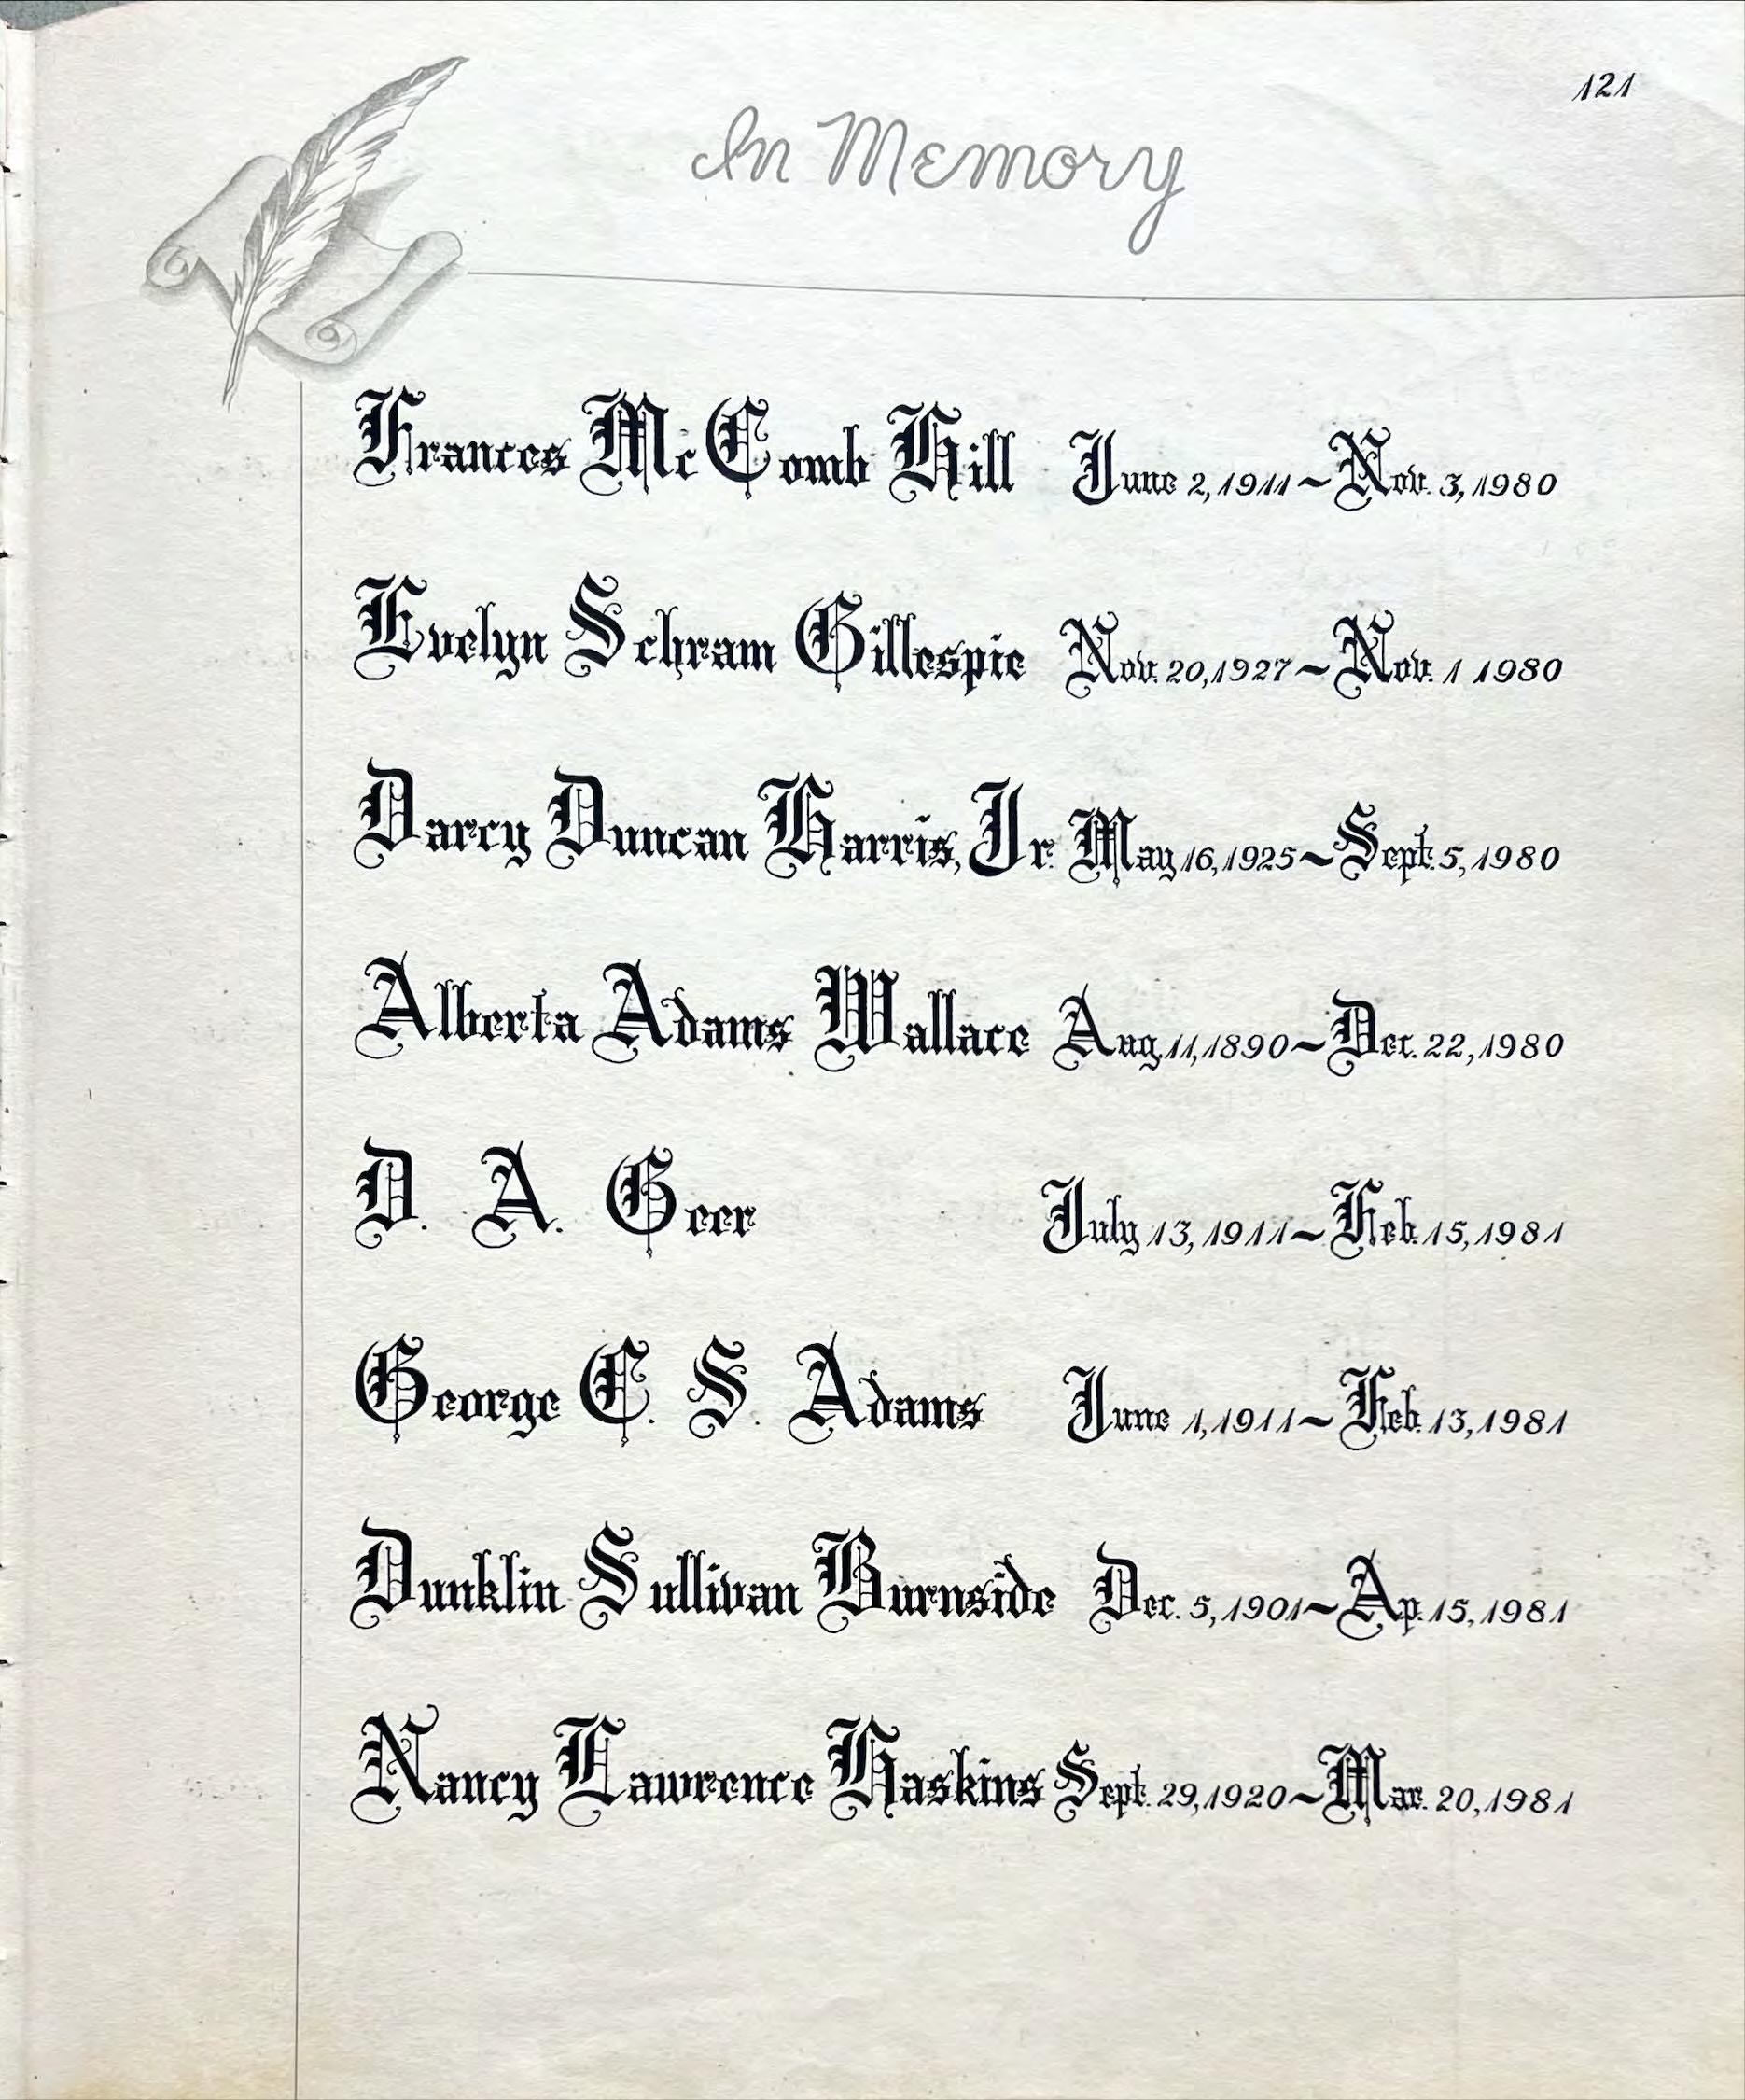 121
In Memory
Frances McComb Hill June 2, 1911~Nov. 3, 1980
Evelyn Schram Gillespie Nov. 20, 1927~Nov. 1 1980
Darcy Duncan Harris, Jr. May 16, 1925~Sept. 5, 1980
Alberta Adams Wallace Aug. 11, 1890~Dec. 22, 1980
D. A. Geer July 13, 1911~Feb. 15, 1981
George C. S. Adams June 1, 1911~Feb. 13, 1981
Dunklin Sullivan Burnside Dec. 5, 1901~Ap. 15, 1981
Nancy Lawrence Haskins Sept. 29, 1920~Mar. 20, 1981